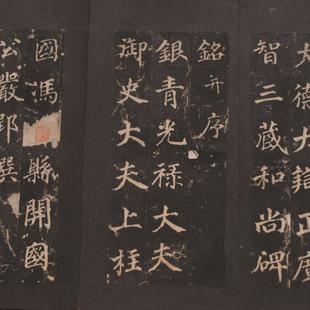 大德大辯正廣
智三藏和尚碑
銘并序
銀青光祿大夫
御史大夫上柱
國馮縣開國
公嚴郢撰